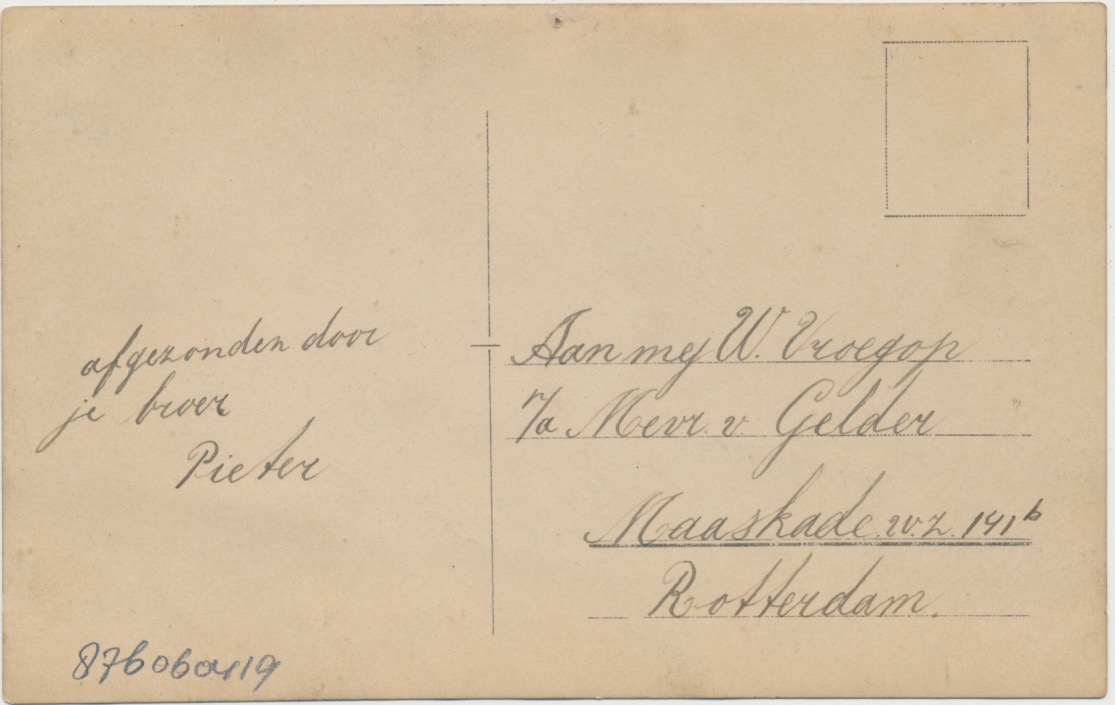 afgezonden door
je broer
Pieter
Aan mej W. Vroegop
p/a Mevr. v. Gelder
Maaskade w.z. 141b
Rotterdam.